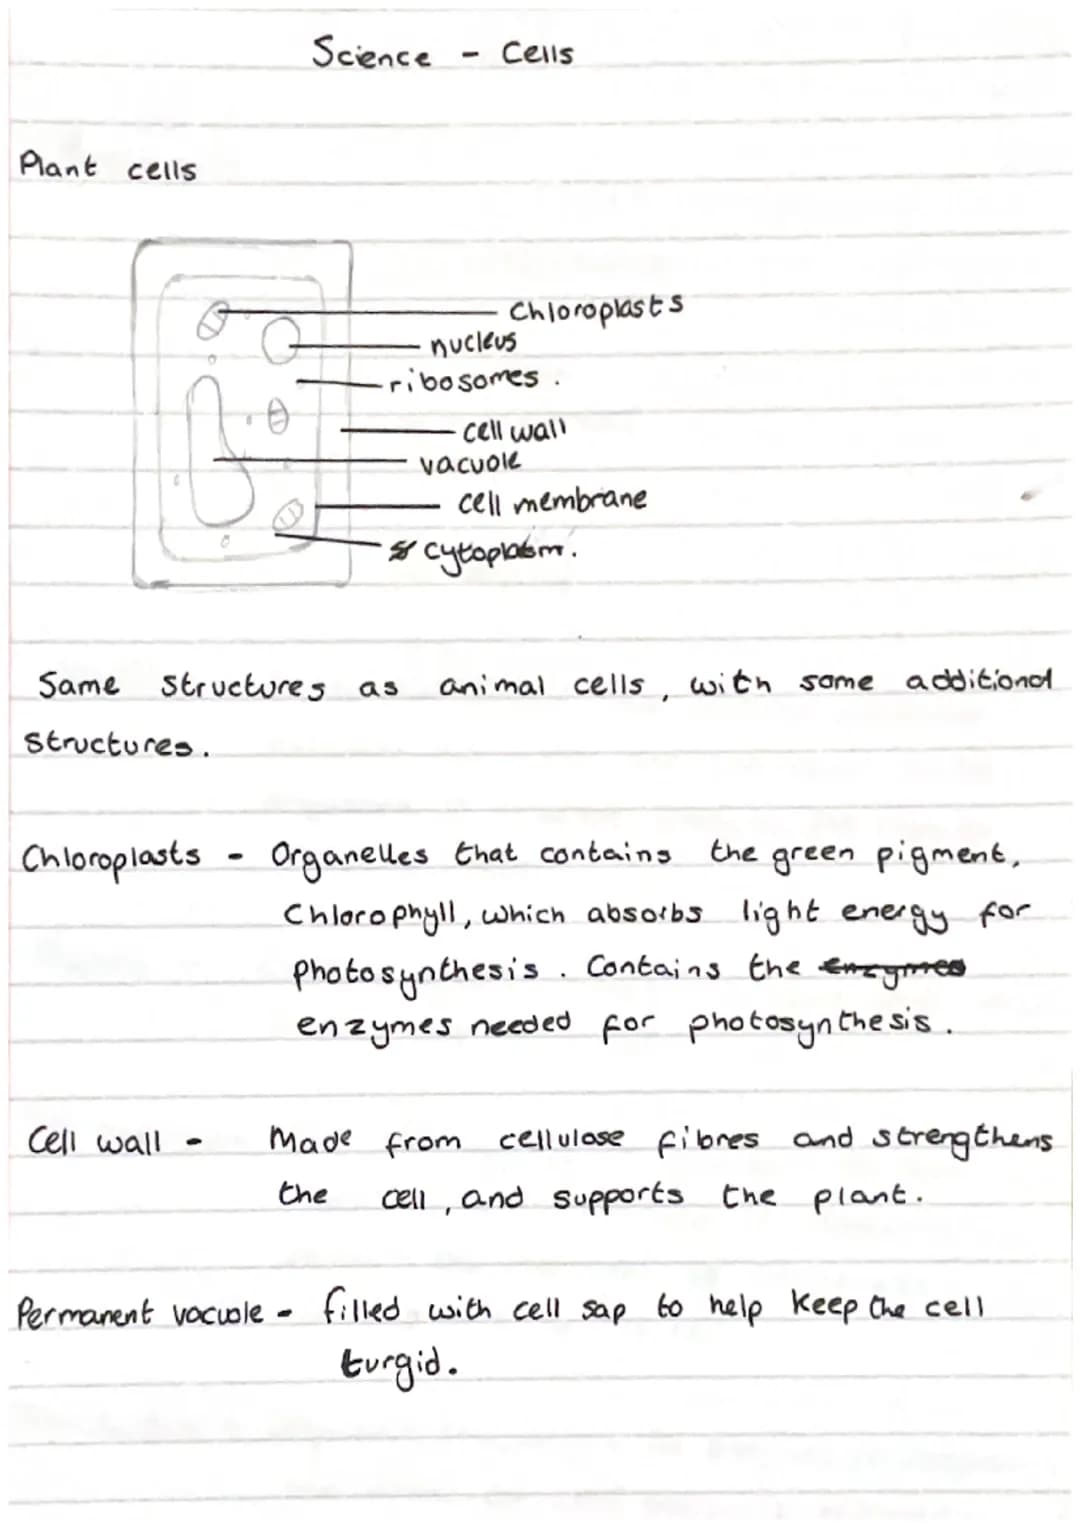 Science - Cells
Plant cells
Chloroplasts
nucleus
ribosomes.
cell wall
vacuole
cell membrane
cytoplasm.
Same structures as animal cells, with some additional
structures.
Chloroplasts - Organelles that contains the green pigment,
Chlorophyll, which absorbs light energy for
photosynthesis. Contains the enzymes
enzymes needed for photosynthesis.
Cell wall - Made from cellulose fibres and strengthens
the cell, and supports the plant.
Permanent vacuole - filled with cell sap to help keep the cell
turgid.